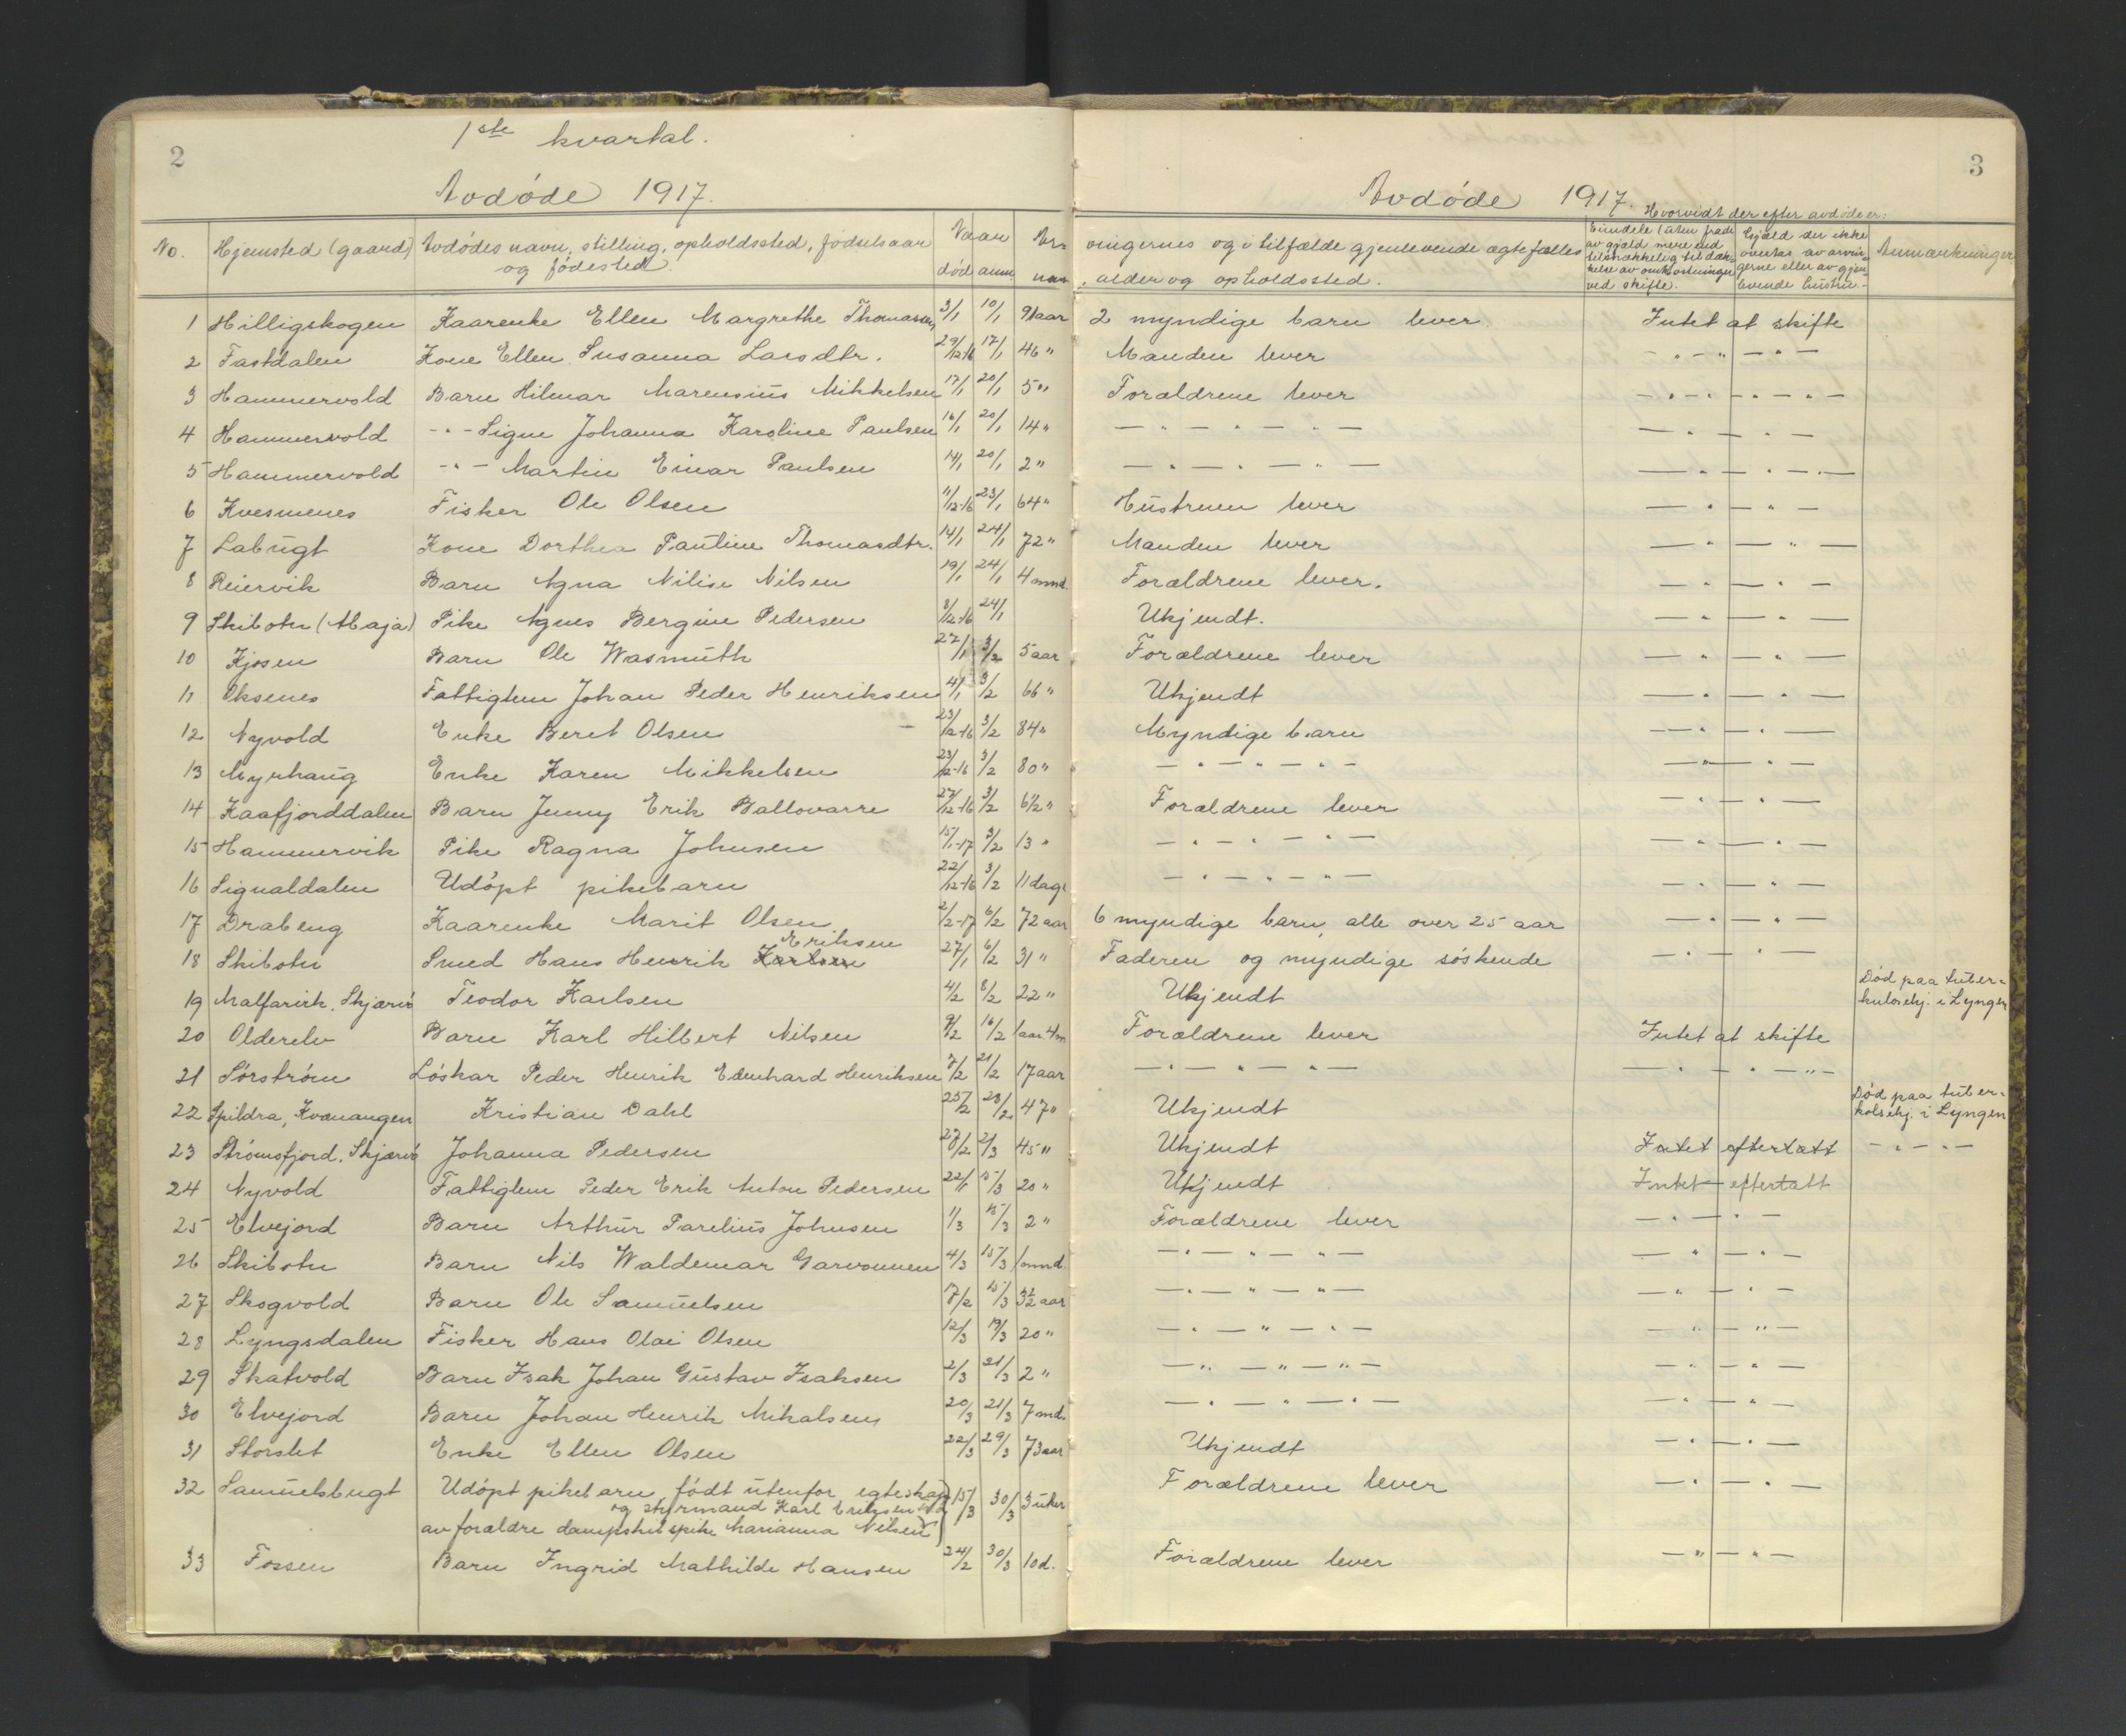 2
1ste kvartal.
Avdöde 1917.
No. Hjemsted (gaard) Avdödes navn, stilling, opholdssted, födselsaar og födested. Naar död anm. Ar-
1 Hilligskogen Kaarenke Ellen Margrethe Thomassen 3/1 10/1 91 aar
2 Fastdalen Kone Ellen Susanna Larsdtr. 29/12-16 17/1 46 "
3 Hammervold Barn Hilmar Marensius Mikkelsen 17/1 20/1 5 "
4 Hammervold - " - Signe Johanna Karoline Paulsen 16/1 20/1 14 "
5 Hammervold - " - Martin Einar Paulsen 14/1 20/1 2 "
6 Kvesmenes Fisker Ole Olsen 11/12-16 23/1 64 "
7 Labugt Kone Dorthea Pauline Thomasdtr. 14/1 24/1 72 "
8 Reiervik Barn Agna Nilise Nilsen 19/1 24/1 4 mnd.
9 Skibotn (Maja) Pike Agnes Bergine Pedersen 8/12-16 24/1
10 Kjosen Barn Ole Wasmuth 27/1 3/2 5 aar
11 Oksenes Fattiglem Johan Peder Henriksen 4/1 3/2 66 "
12 Nyvold Enke Beret Olsen 23/12-16 3/2 84 "
13 Myrhaug Enke Karen Mikkelsen 23/12-16 3/2 80 "
14 Kaafjorddalen Barn Jenny Erik Ballovarre 27/12-16 3/2 6½ "
15 Hammervik Pike Ragna Johnsen 15/1-17 3/2 13 "
16 Signaldalen Udöpt pikebarn 22/12-16 3/2 11 dage
17 Drabeng Kaarenke Marit Olsen 2/2-17 6/2 72 aar
18 Skibotn Smed Hans Henrik Karlsen Eriksen 27/1 6/2 31 "
19 Malfarvik. Skjærvö Teodor Karlsen 4/2 8/2 22 "
20 Olderelv Barn Karl Hilbert Nilsen 9/2 16/2 1 aar 4 m
21 Sörström Löskar Peder Henrik Edenhard Henriksen 7/2 21/2 17 aar
22 Spildra, Kvænangen Kristian Dahl 25/2 28/2 47 "
23 Strömsfjord. Skjærvö Johanna Pedersen 27/2 2/3 45 "
24 Nyvold Fattiglem Peder Erik Anton Pedersen 22/1 15/3 20 "
25 Elvejord Barn Arthur Parelius Johnsen 1/3 15/3 2 "
26 Skibotn Barn Nils Waldemar Garvonnen 4/3 15/3 1 mnd.
27 Skogvold Barn Ole Samuelsen 17/2 15/3 3½ aar
28 Lyngsdalen Fisker Hans Olai Olsen 12/3 19/3 20 "
29 Skatvold Barn Isak Johan Gustav Isaksen 2/3 21/3 2 "
30 Elvejord Barn Johan Henrik Mikalsen 20/3 21/3 7 mnd.
31 Storslet Enke Ellen Olsen 22/3 29/3 73 aar
32 Samuelsbugt Udöpt pikebarn födt utenfor egteskap 15/3 30/3 3 uker
og styrmand Karl Eriksen
av forældre dampskibspike Marianna Nilsen
33 Fossen Barn Ingrid Mathilde Hansen 24/2 30/3 10 d.
3
Avdöde 1917.
Hvorvidt der efter avdöde er:
vingernes og i tilfælde gjenlevende ægtefælles alder og opholdssted. Eiendele (uten fradrag av gjæld) mere end tilstrækkelig til dækkelse av omkostninger ved skifte. Gjæld der ikke overtas av arvingerne eller av gjenlevende hustru.- Anmærkninger
2 myndige barn lever. Intet at skifte
Manden lever - " - " - " -
Forældrene lever - " - " - " - " -
- " - " - " - - " - " -
- " - " - " - - " - " - " -
Hustruen lever - " - " -
Manden lever - " - " -
Forældrene lever. - " - " -
Ukjendt. - " - " -
Forældrene lever - " - " -
Ukjendt - " - " -
Myndige barn - " - " -
- " - " - " - - " - " -
Forældrene lever - " - " -
- " - " - " - - " - " -
- " - " - " - - " - " -
6 myndige barn, alle over 25 aar - " - " -
Faderen og myndige söskende - " - " -
Ukjendt Död paa tuber-
kulosehj. i Lyngen
Forældrene lever Intet at skifte
- " - " - " - - " - " -
Ukjendt Död paa tuber-
kolsehj. i Lyngen
Ukjendt Intet efterlatt - " - " -
Ukjendt Intet efterlatt
Forældrene lever - " - " -
- " - " - " - - " - " -
- " - " - " - - " - " -
- " - " - " - - " - " -
- " - " - " - - " - " -
- " - " - " - - " - " -
Ukjendt - " - " -
Forældrene lever - " - " -
Forældrene lever - " - " -